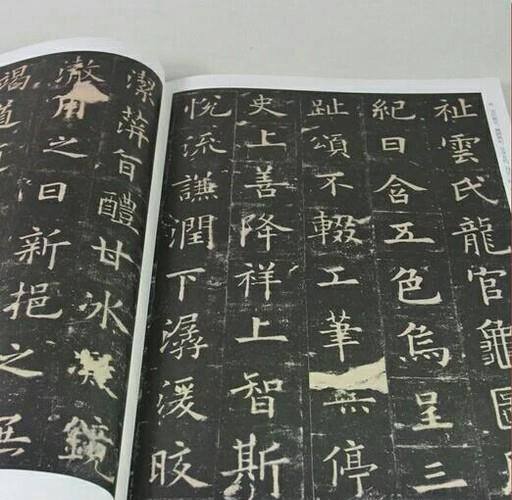 祉雲氏龍官龜圖
紀日含五色烏呈三
趾頌不輟工筆無停
史上善降祥上智斯
悅流謙潤下潺湲皎
潔蓱旨醴甘冰凝鏡
澈用之日新挹之無
竭道